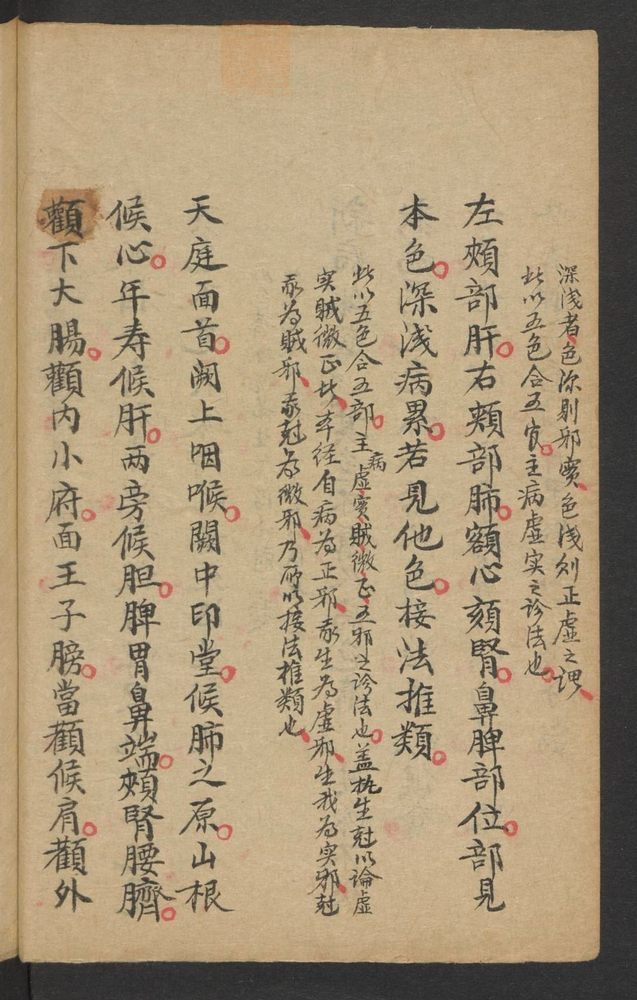 深淺者色深則邪實色淺則正虛之謂
此以五色合五官主病虛实之诊法也
左頰部肝右頰部肺額心頦腎鼻脾部位部見
本色深淺病累若見他色按法推類
此以五色合五部主病虛实贼微正五邪之诊法也盖抚生尅以論虛
实贼微正此本经自病为正邪我生为虛邪生我为实邪尅
我为贼邪我尅为微邪乃所以按法推類也
天庭面首阙上咽喉闕中印堂候肺之原山根
候心年寿候肝两旁候胆脾胃鼻端頰腎腰臍
顴下大腸顴内小府面王子膀當顴候肩顴外